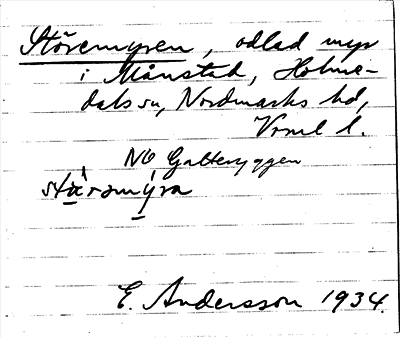 Störemyren, odlad myr
i Månstad, Holme-
dals sn, Nordmarks hd,
Vrml l.
NO Galteryggen
stäromýra
E. Andersson 1934.